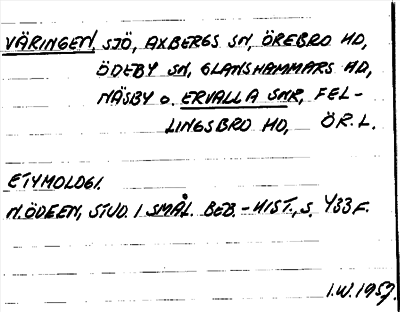 VÄRINGEN, SJÖ, AXBERGS SN, ÖREBRO HD,
ÖDEBY SN, GLANSHAMMARS HD,
NÄSBY O. ERVALLA SNR, FEL-
LINGSBRO HD, ÖR. L.
ETYMOLOGI.
N. ÖDEEN, STUD. I SMÅL. BEB.-HIST., S. 433 F.
I.W. 1957.